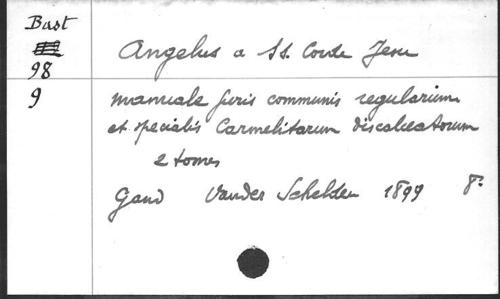 Bast
98
9
Angelus a SS. Corde Jesu
manuale juris communis regularium
et specialis Carmelitarum discalceatorum
2 tomes
Gand Vander Schelden 1899 8°